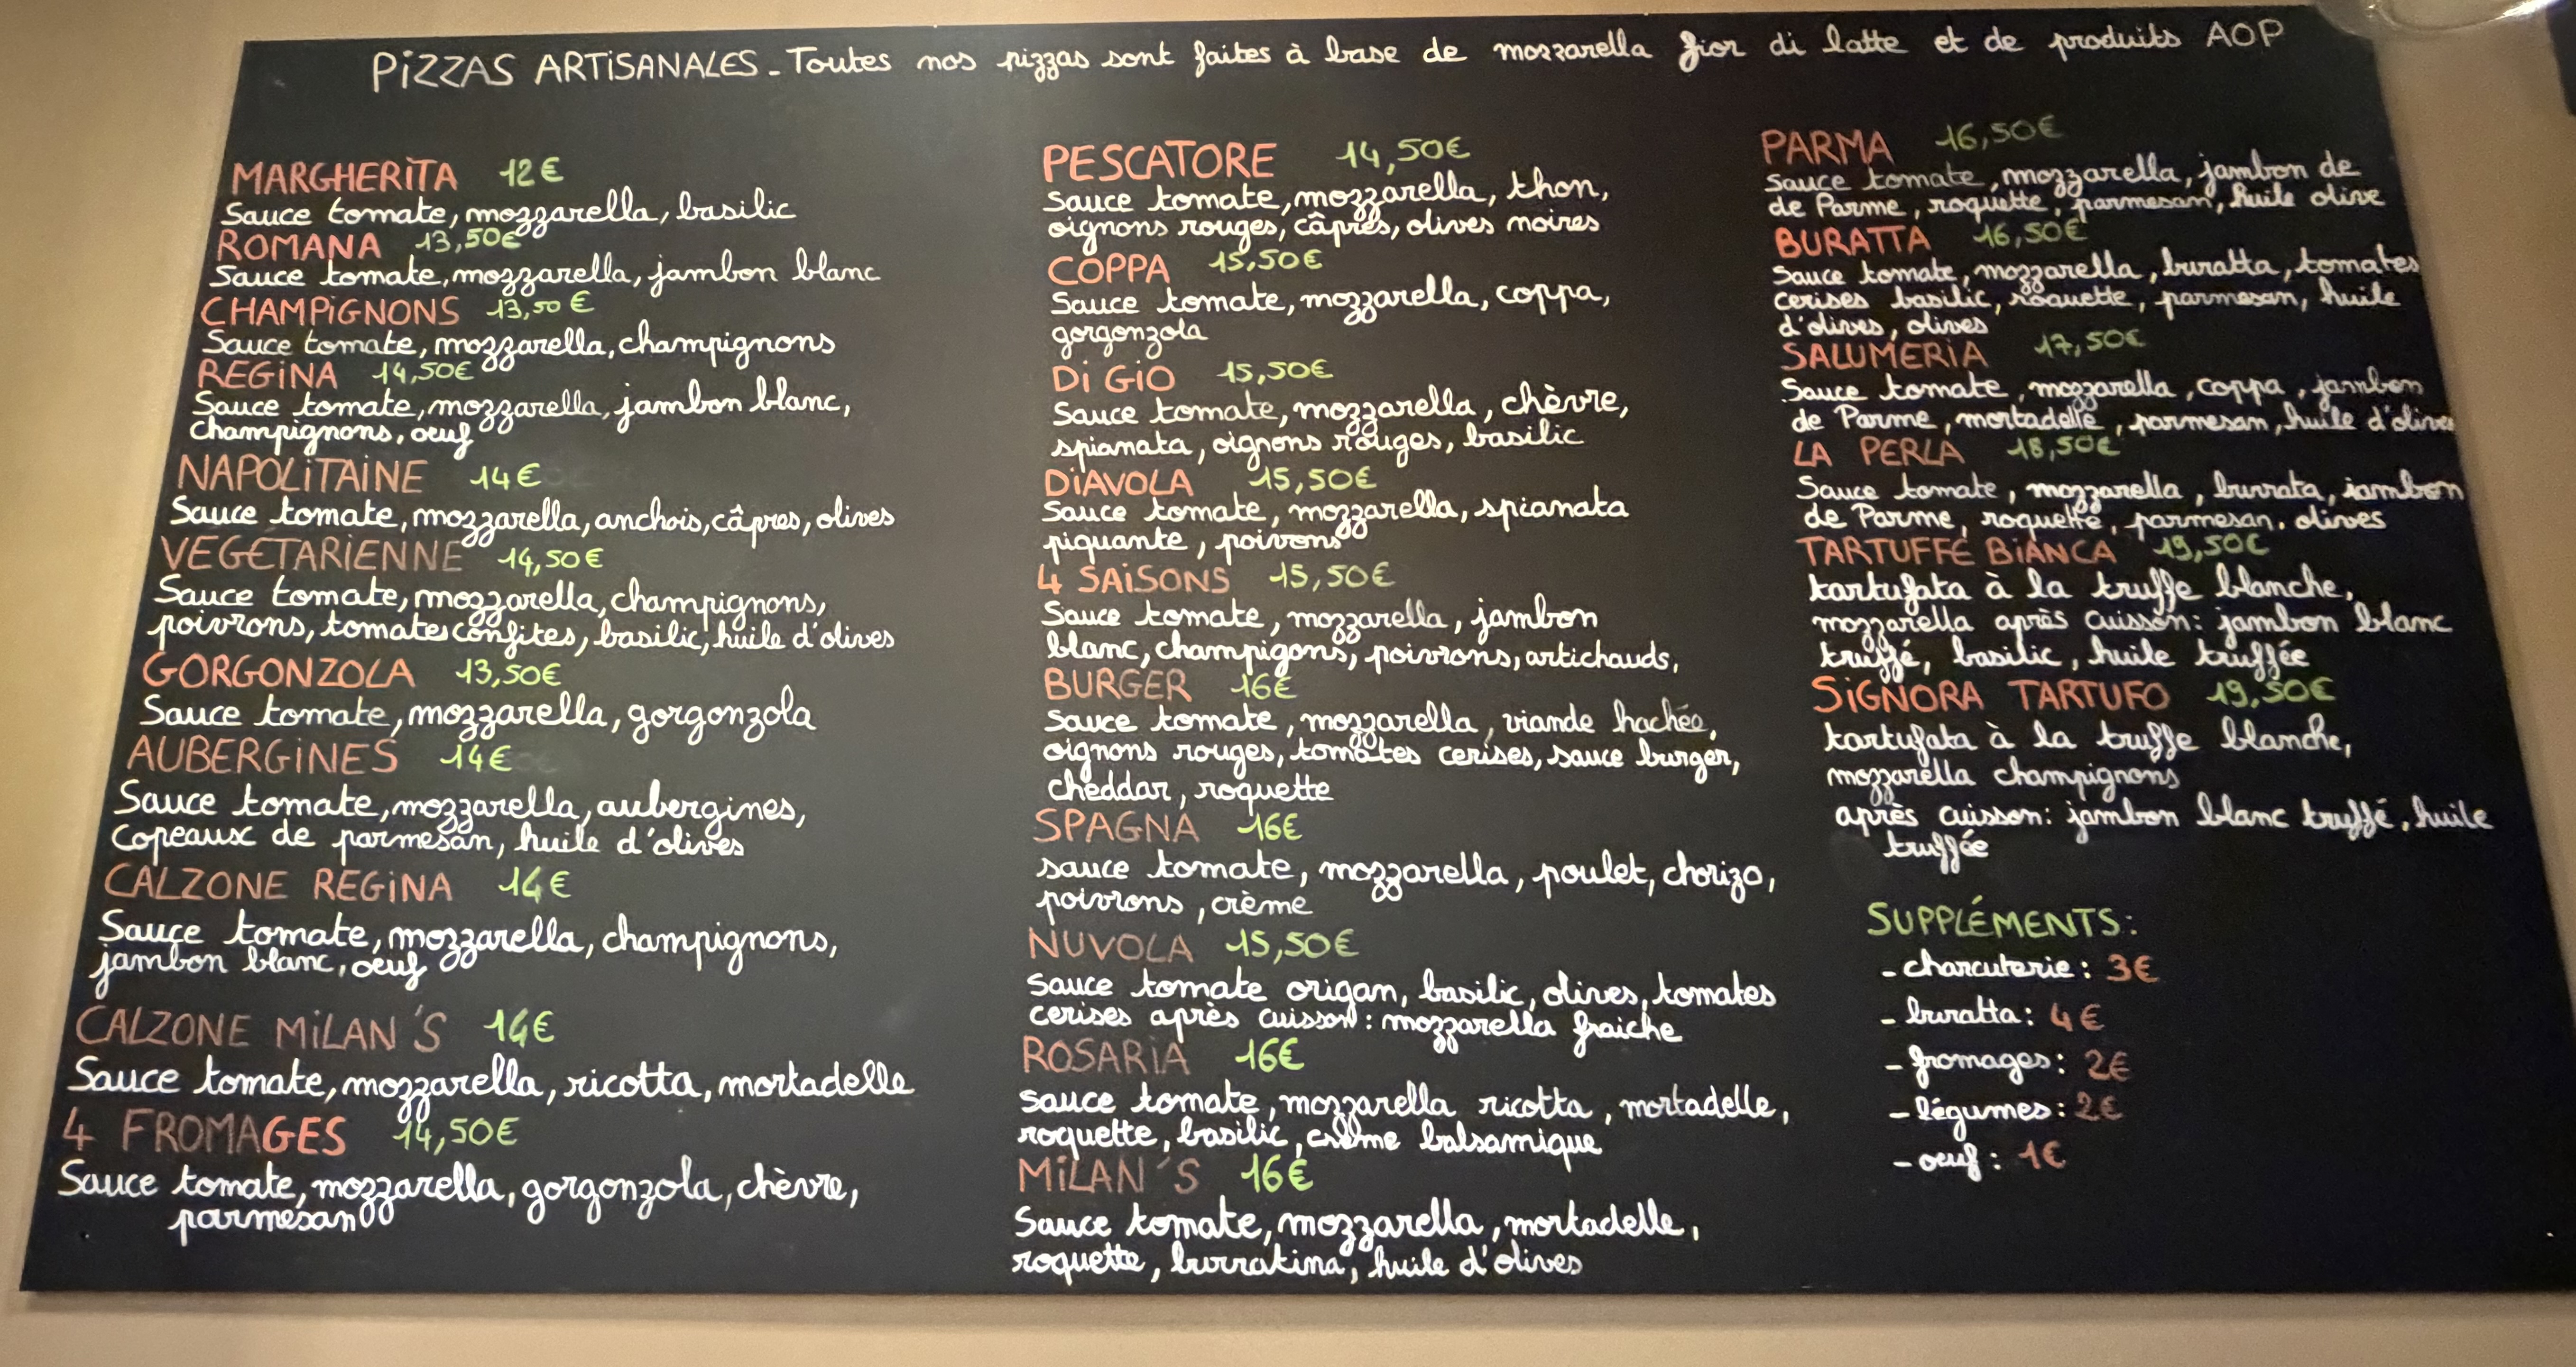 PiZZAS ARTiSANALES - Toutes nos pizzas sont faites à base de mozzarella fior di latte et de produits AOP
MARGHERiTA 12€
Sauce tomate, mozzarella, basilic
ROMANA 13,50€
Sauce tomate, mozzarella, jambon blanc
CHAMPiGNONS 13,50€
Sauce tomate, mozzarella, champignons
REGiNA 14,50€
Sauce tomate, mozzarella, jambon blanc,
champignons, oeuf
NAPOLiTAiNE 14€
Sauce tomate, mozzarella, anchois, câpres, olives
VEGETARiENNE 14,50€
Sauce tomate, mozzarella, champignons,
poivrons, tomates confites, basilic, huile d'olives
GORGONZOLA 13,50€
Sauce tomate, mozzarella, gorgonzola
AUBERGiNES 14€
Sauce tomate, mozzarella, aubergines,
Copeaux de parmesan, huile d'olives
CALZONE REGiNA 14€
Sauce tomate, mozzarella, champignons,
jambon blanc, oeuf
CALZONE MiLAN'S 14€
Sauce tomate, mozzarella, ricotta, mortadelle
4 FROMAGES 14,50€
Sauce tomate, mozzarella, gorgonzola, chèvre,
parmesan
PESCATORE 14,50€
Sauce tomate, mozzarella, thon,
oignons rouges, câpres, olives noires
COPPA 15,50€
Sauce tomate, mozzarella, coppa,
gorgonzola
Di GiO 15,50€
Sauce tomate, mozzarella, chèvre,
spianata, oignons rouges, basilic
DiAVOLA 15,50€
Sauce tomate, mozzarella, spianata
piquante, poivrons
4 SAiSONS 15,50€
Sauce tomate, mozzarella, jambon
blanc, champigons, poivrons, artichauds,
BURGER 16€
Sauce tomate, mozzarella, viande hachée,
oignons rouges, tomates cerises, sauce burger,
cheddar, roquette
SPAGNA 16€
sauce tomate, mozzarella, poulet, chorizo,
poivrons, crème
NUVOLA 15,50€
Sauce tomate origan, basilic, olives, tomates
cerises après cuisson : mozzarella fraiche
ROSARiA 16€
sauce tomate, mozzarella ricotta, mortadelle,
roquette, basilic, crème balsamique
MiLAN'S 16€
Sauce tomate, mozzarella, mortadelle,
roquette, burratina, huile d'olives
PARMA 16,50€
Sauce tomate, mozzarella, jambon de
de Parme, roquette, parmesan, huile olive
BURATTA 16,50€
Sauce tomate, mozzarella, buratta, tomates
cerises basilic, roquette, parmesan, huile
d'olives, olives
SALUMERiA 17,50€
Sauce tomate, mozzarella, coppa, jambon
de Parme, mortadelle, parmesan, huile d'olives
LA PERLA 18,50€
Sauce tomate, mozzarella, burrata, jambon
de Parme, roquette, parmesan, olives
TARTUFFE BiANCA 19,50€
tartufata à la truffe blanche,
mozzarella après cuisson: jambon blanc
truffé, basilic, huile truffée
SiGNORA TARTUFO 19,50€
tartufata à la truffe blanche,
mozzarella champignons
après cuisson: jambon blanc truffé, huile
truffée
SUPPLÉMENTS:
- charcuterie: 3€
- buratta: 4€
- fromages: 2€
- légumes: 2€
- oeuf: 1€